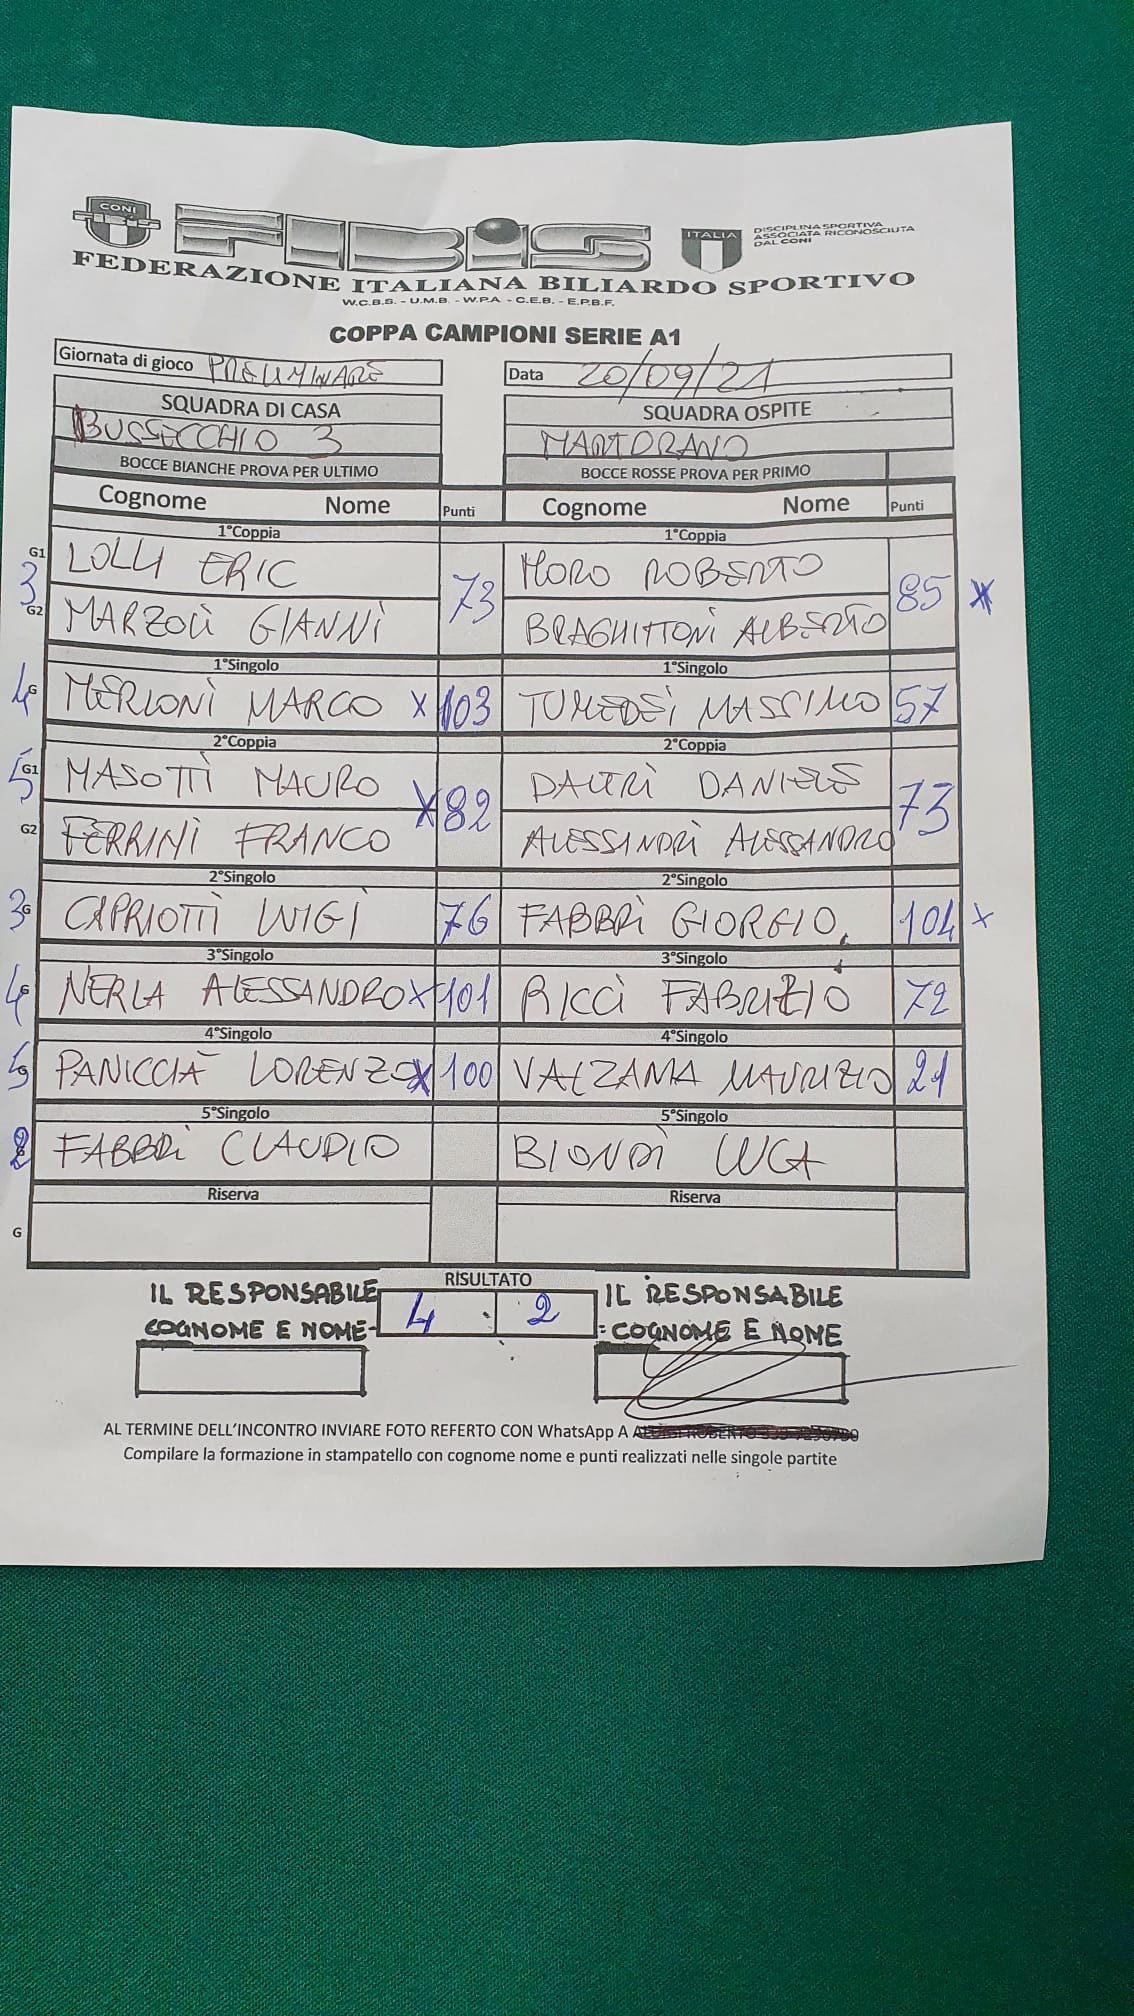 CONI
FIBiS
ITALIA
DISCIPLINA SPORTIVA
ASSOCIATA RICONOSCIUTA
DAL CONI
FEDERAZIONE ITALIANA BILIARDO SPORTIVO
W.C.B.S. - U.M.B. - W.P.A. - C.E.B. - E.P.B.F.
COPPA CAMPIONI SERIE A1
Giornata di gioco PRELIMINARE Data 20/09/21
SQUADRA DI CASA SQUADRA OSPITE
BUSSECCHIO 3 MARTORANO
BOCCE BIANCHE PROVA PER ULTIMO BOCCE ROSSE PROVA PER PRIMO
Cognome Nome Punti Cognome Nome Punti
1°Coppia 1°Coppia
G1 LOLLI ERIC MORO ROBERTO
3 73 85 X
G2 MARZOLI GIANNI BRAGHITTONI ALBERTO
1°Singolo 1°Singolo
4 G MERLONI MARCO X 103 TUMEDEI MASSIMO 57
2°Coppia 2°Coppia
5 G1 MASOTTI MAURO DALTRI DANIELE
X 82 73
G2 FERRINI FRANCO ALESSANDRI ALESSANDRO
2°Singolo 2°Singolo
3 G CAPRIOTTI LUIGI 76 FABBRI GIORGIO 104 X
3°Singolo 3°Singolo
4 G NERLA ALESSANDRO X 101 RICCI FABRIZIO 72
4°Singolo 4°Singolo
5 G PANICCIÀ LORENZO X 100 VALZANIA MAURIZIO 21
5°Singolo 5°Singolo
2 FABBRI CLAUDIO BIONDI LUCA
Riserva Riserva
G
RISULTATO
IL RESPONSABILE 4 2 IL RESPONSABILE
COGNOME E NOME COGNOME E NOME
AL TERMINE DELL'INCONTRO INVIARE FOTO REFERTO CON WhatsApp A
Compilare la formazione in stampatello con cognome nome e punti realizzati nelle singole partite